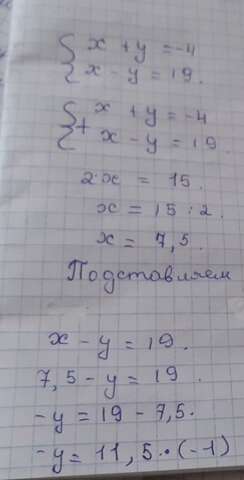 x + y = -4
x - y = 19.
+ x + y = -4
x - y = 19.
2·x = 15.
x = 15 : 2.
x = 7,5.
Подставляем
x - y = 19.
7,5 - y = 19.
-y = 19 - 7,5.
-y = 11,5 · (-1)